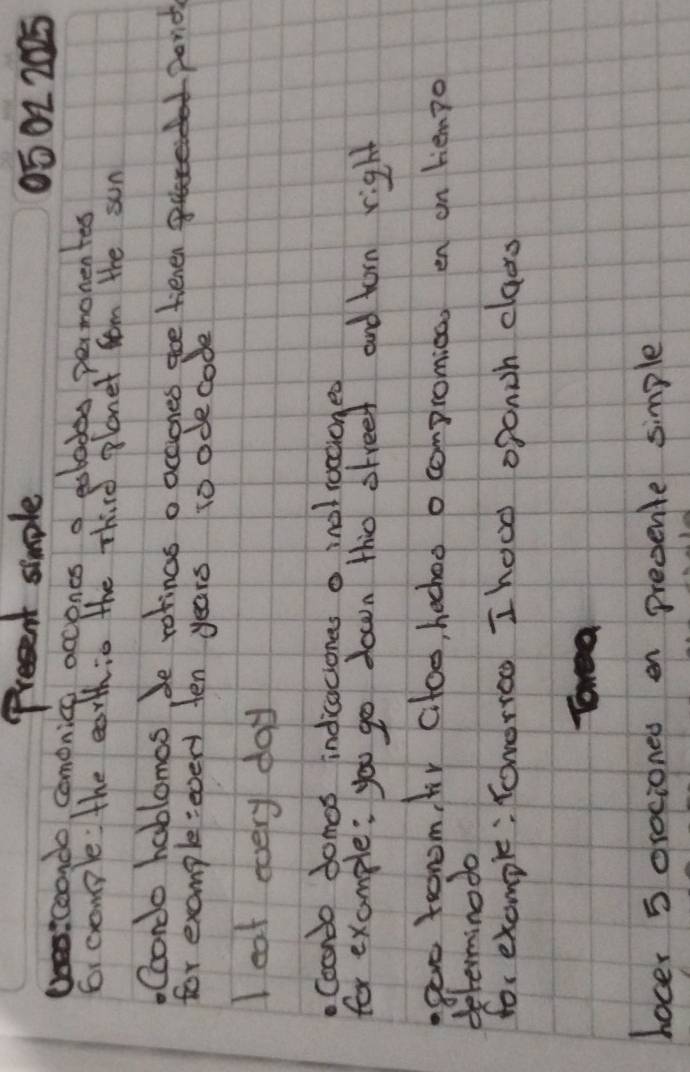 Present simple 05 02 2025
Usos: Cuando comunica acciones o estados permanentes
for example: the earth is the third planet from the sun
• Cuando hablamos de rutinas o acciones que tienen
for example: every ten years is
I eat every day
• Cuando damos indicaciones o instrucciones
for example: you go down this street and turn right
• para transmitir citas, hechos o compromisos en un tiempo
determinado
for example: Tomorrow I have spanish class
Tarea
hacer 5 oraciones en presente simple